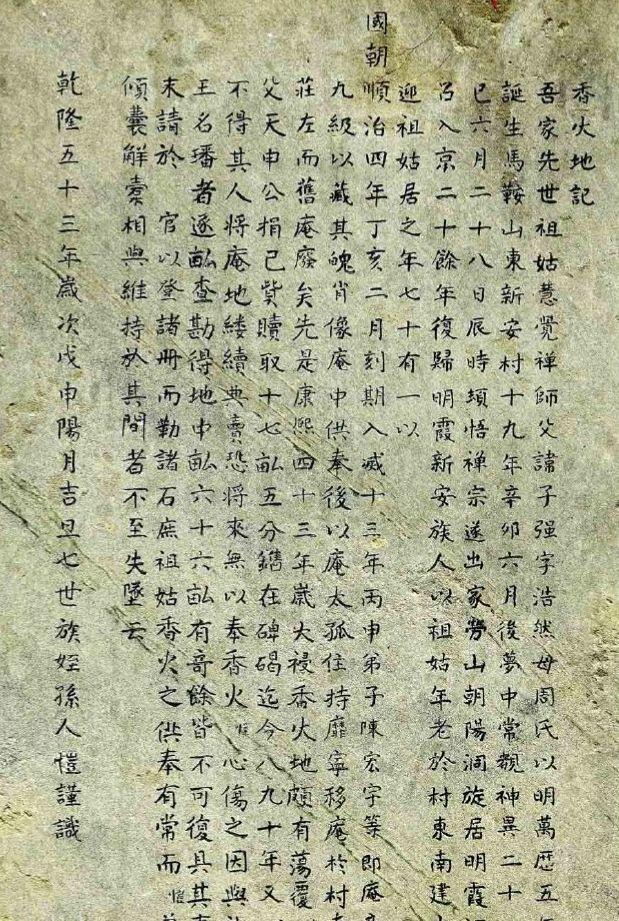 香火地記
吾家先世祖姑慧覺禪師父諱子强字浩然母周氏以明萬歷五
誕生馬鞍山東新安村十九年辛卯六月後夢中常覩神異二十
巳六月二十八日辰時頓悟禪宗遂出家勞山朝陽洞旋居明霞
召入京二十餘年復歸明霞新安族人以祖姑年老於村東南建
迎祖姑居之年七十有一以
國朝順治四年丁亥二月刻期入滅十三年丙申弟子陳宏宇等即庵
九級以藏其魄肖像庵中供奉後以庵太孤住持靡寧移庵於村
莊左而舊庵廢矣先是康熙四十三年歲大祲香火地頗有蕩覆
父天申公捐己貲贖取十七畝五分鐫在碑碣迄今八九十年又
不得其人將庵地縷續典賣恐將來無以奉香火愷心傷之因與
王名璠者逐畝查勘得地中畝六十六畝有奇餘皆不可復具其
末請於 官以登諸冊而勒諸石庶祖姑香火之供奉有常而愷
傾囊解橐相與維持於其間者不至失墜云
乾隆五十三年歲次戊申陽月吉旦七世族姪孫人愷謹識